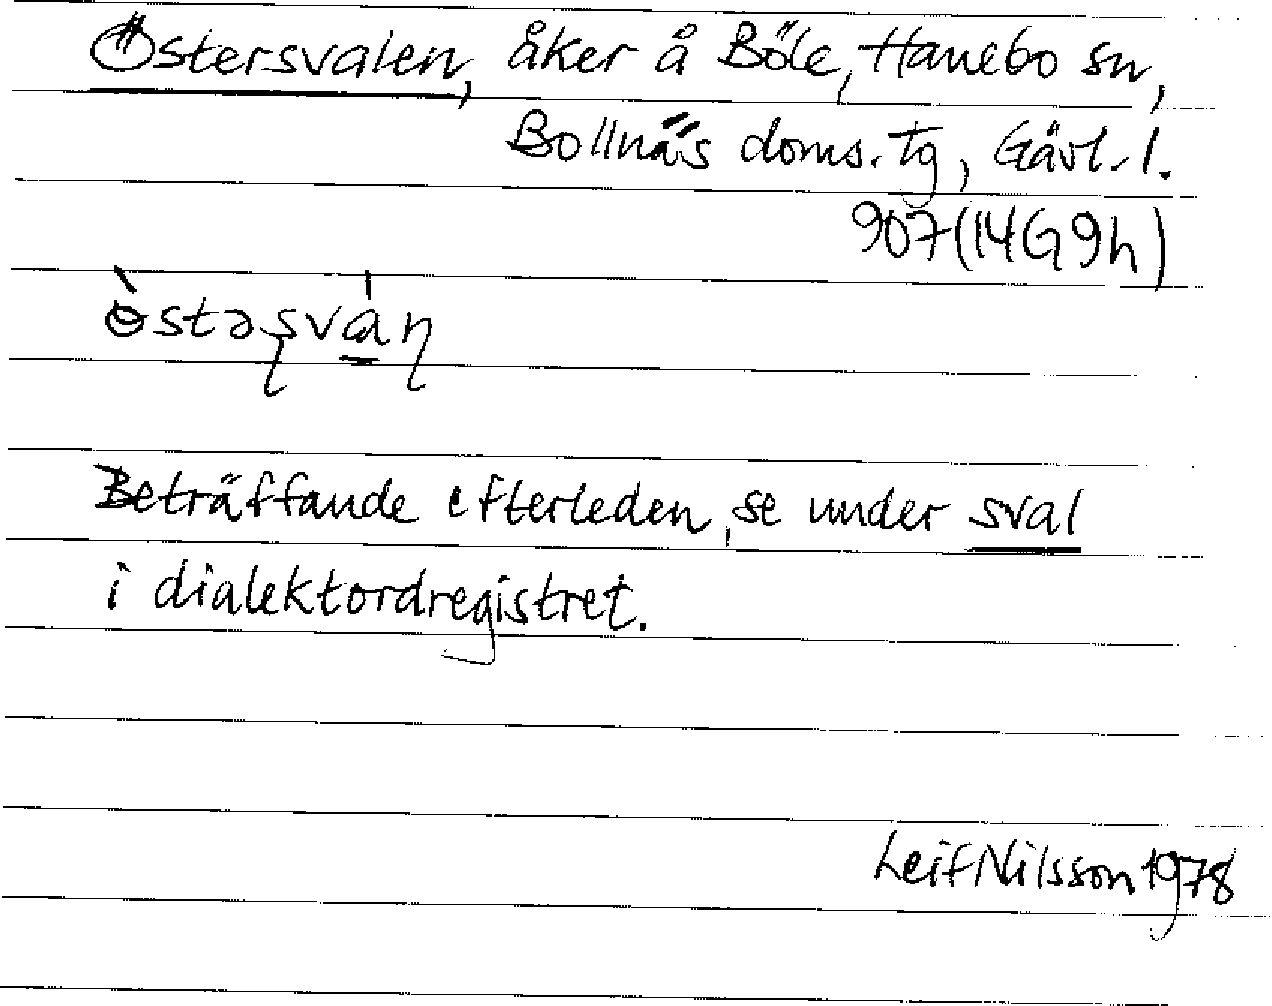 Östersvalen, åker å Böle, Hanebo sn,
Bollnäs doms. tg, Gävl. l.
907 (14G9h)
ɵ̀stəʂváɳ
Beträffande efterleden, se under sval
i dialektordregistret.
Leif Nilsson 1978